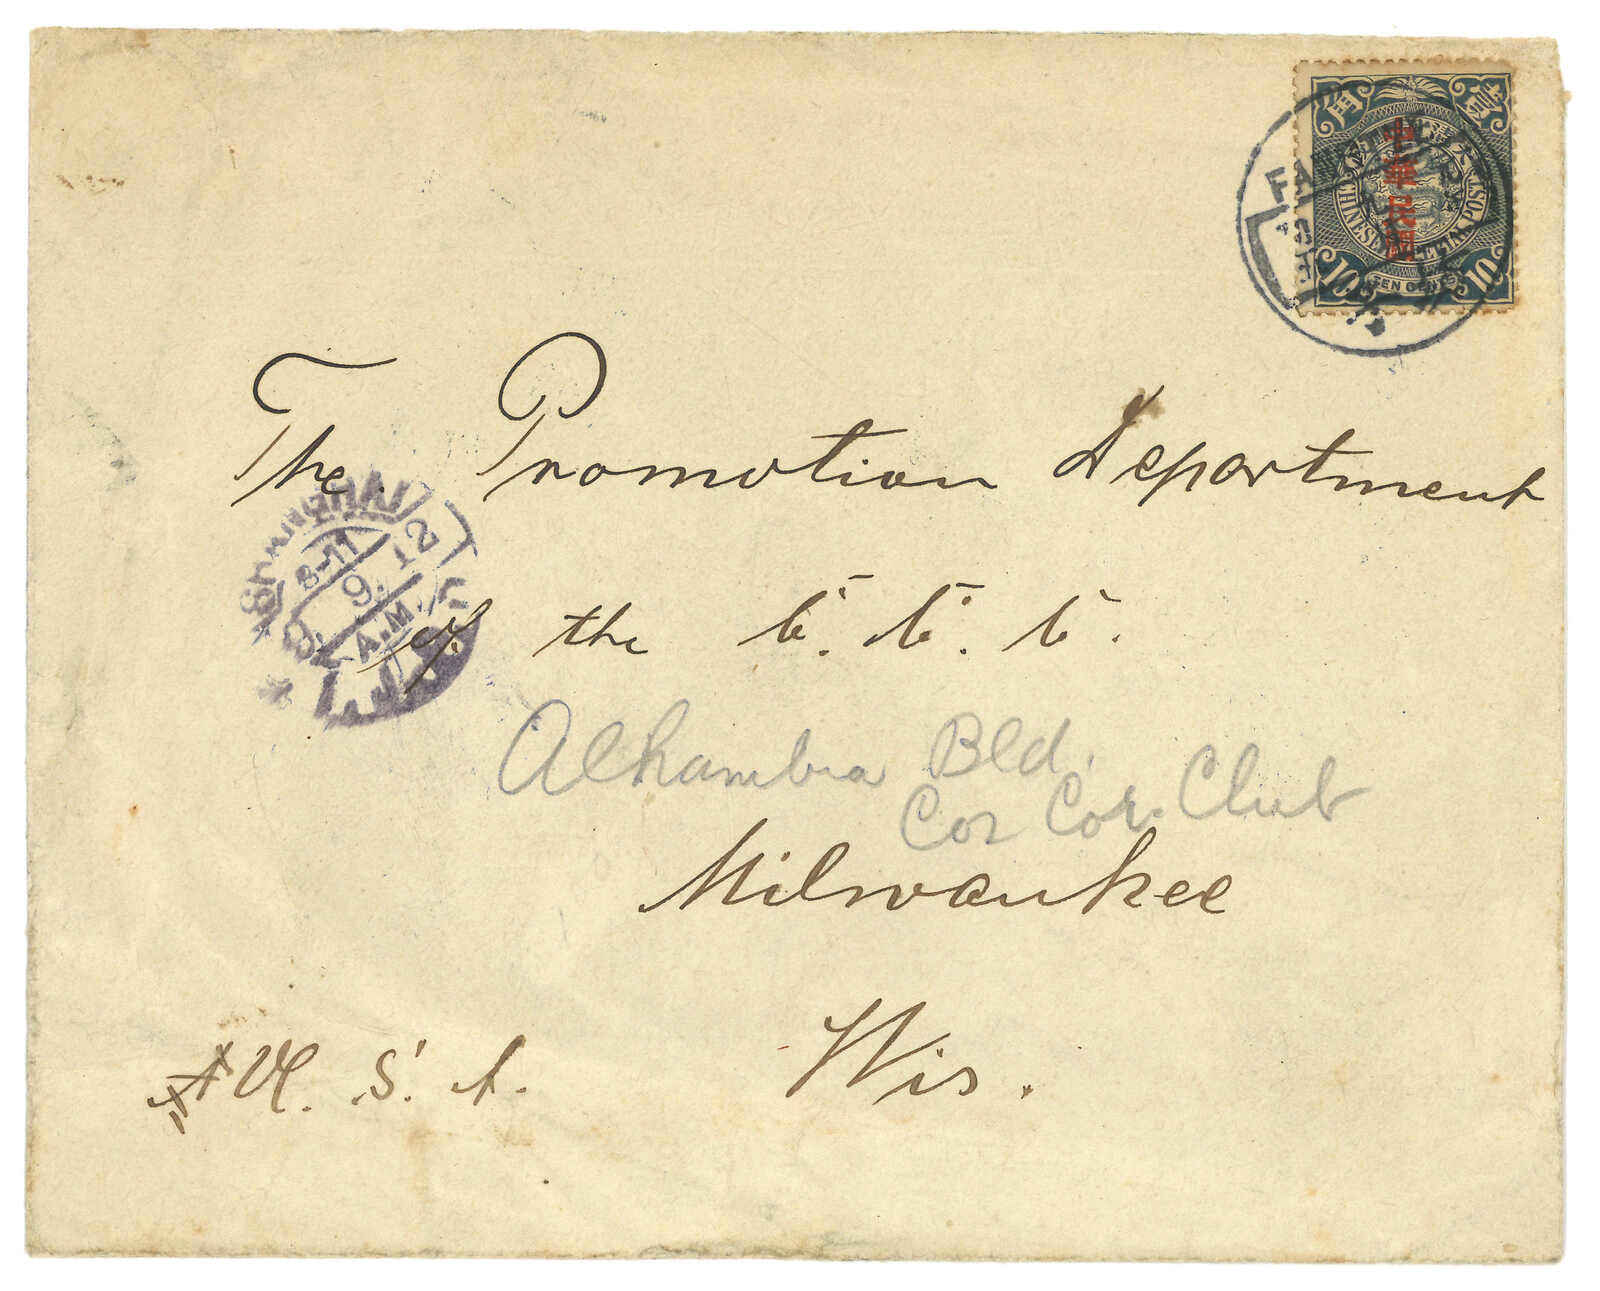 CHINESE IMPERIAL POST
中華民國
10 TEN CENTS 10
The Promotion Department
SHANGHAI
8-11
9. 9. 12
A.M.
of the
Alhambra Bld.
Cor Club
Milwaukee
Wis.
U. S. A.